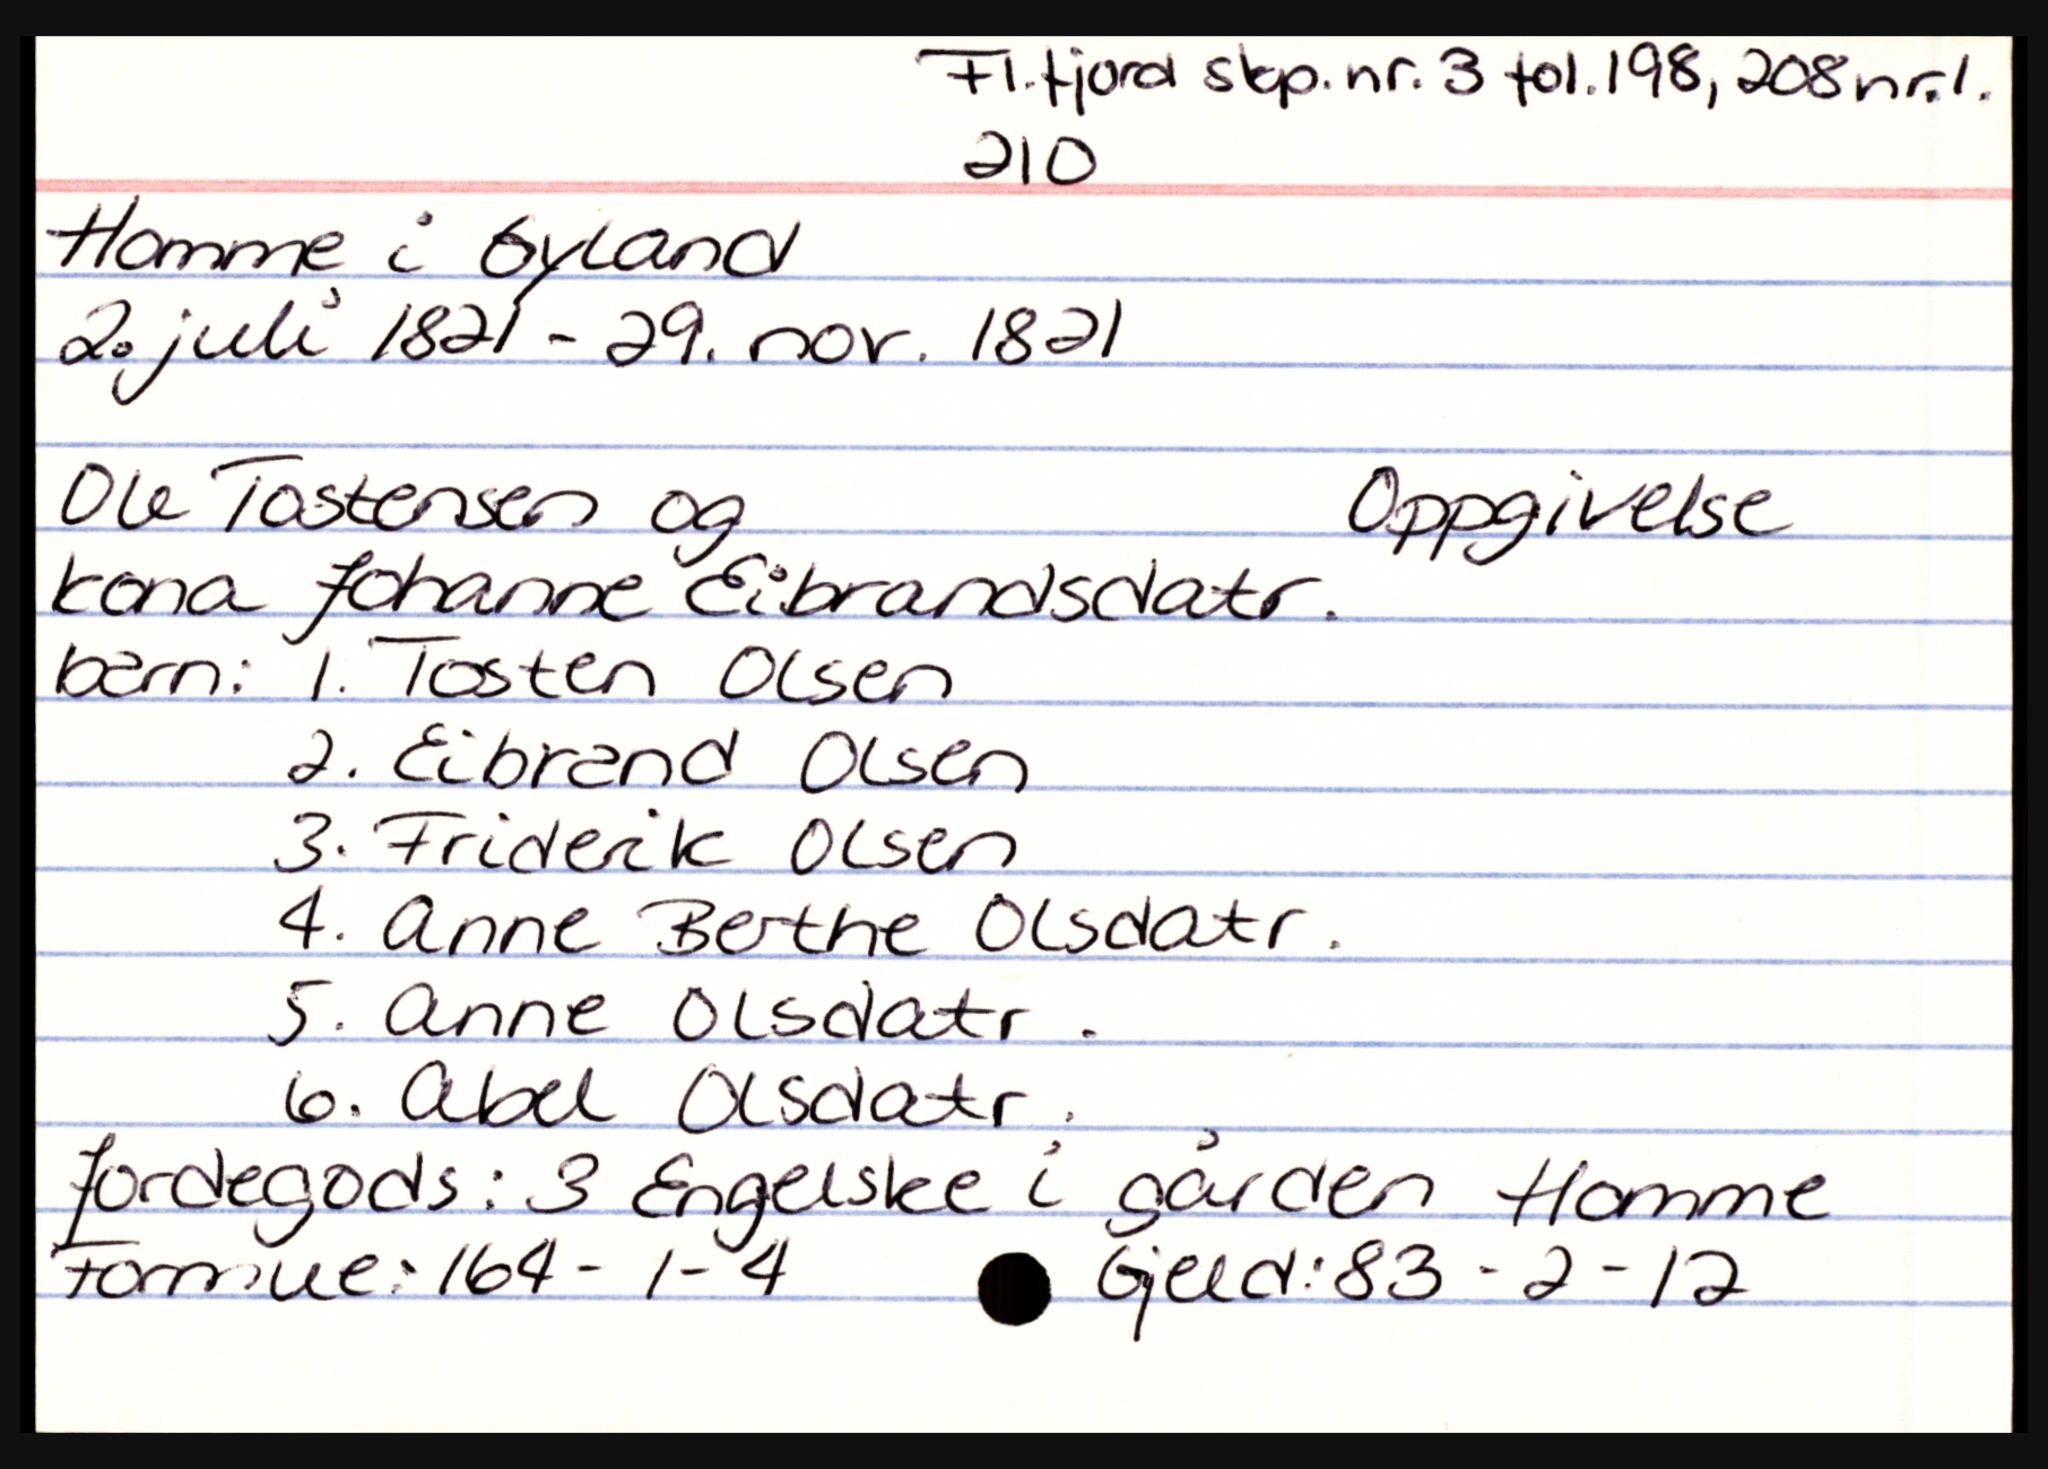 Fl.fjord skp. nr. 3 fol. 198, 208 nr. 1.
210
Homme i Gyland
2. juli 1821 - 29. nov. 1821
Ole Tostensen og Oppgivelse
kona Johanne Eibrandsdatr.
barn: 1. Tosten Olsen
2. Eibrand Olsen
3. Friderik Olsen
4. Anne Berthe Olsdatr.
5. Anne Olsdatr.
6. Abel Olsdatr.
Jordegods: 3 Engelske i gården Homme
Formue: 164 - 1 - 4 Gjeld: 83 - 2 - 12